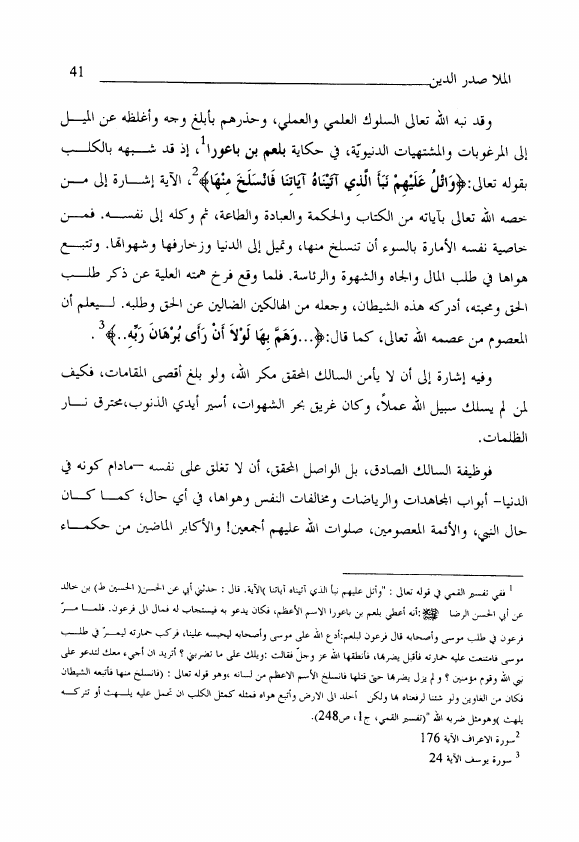 الملا صدر الدين 41
وقد نبه الله تعالى السلوك العلمي والعملي، وحذرهم بأبلغ وجه وأغلظه عن الميـــل
إلى المرغوبات والمشتهيات الدنيويّة، في حكاية بلعم بن باعورا1، إذ قد شـــبهه بالكلـــب
بقوله تعالى:﴿وَاتْلُ عَلَيْهِمْ نَبَأَ الَّذِي آتَيْنَاهُ آيَاتِنَا فَانْسَلَخَ مِنْهَا﴾2، الآية إشـــارة إلى مـــن
خصه الله تعالى بآياته من الكتاب والحكمة والعبادة والطاعة، ثم وكله إلى نفســـه. فمـــن
خاصية نفسه الأمارة بالسوء أن تنسلخ منها، وتميل إلى الدنيا وزخارفها وشهواتها. وتتبـــع
هواها في طلب المال والجاه والشهوة والرئاسة. فلما وقع فرخ همته العلية عن ذكر طلـــب
الحق ومحبته، أدركه هذه الشيطان، وجعله من الهالكين الضالين عن الحق وطلبه. لـــيعلم أن
المعصوم من عصمه الله تعالى، كما قال:﴿...وَهَمَّ بِهَا لَوْلاَ أَنْ رَأَى بُرْهَانَ رَبِّهِ..﴾3 .
وفيه إشارة إلى أن لا يأمن السالك المحقق مكر الله، ولو بلغ أقصى المقامات، فكيف
لمن لم يسلك سبيل الله عملاً، وكان غريق بحر الشهوات، أسير أيدي الذنوب،محترق نـــار
الظلمات.
فوظيفة السالك الصادق، بل الواصل المحقق، أن لا تغلق على نفسه –مادام كونه في
الدنيا– أبواب المجاهدات والرياضات ومخالفات النفس وهواها، في أي حال؛ كمـــا كـــان
حال النبي، والأئمة المعصومين، صلوات الله عليهم أجمعين! والأكابر الماضين من حكمـــاء
1 ففي تفسير القمي في قوله تعالى : "وأتل عليهم نبأ الذي أتيناه آياتنا )الآية. قال : حدثني أبي عن الحسن( الحسين ط) بن خالد
عن أبي الحسن الرضا :أنه أعطي بلعم بن باعورا الاسم الأعظم، فكان يدعو به فيستجاب له فمال الى فرعون. فلمـــا مـــرّ
فرعون في طلب موسى وأصحابه قال فرعون لبلعم:أدع الله على موسى وأصحابه ليحبسه علينا، فركب حمارته ليمـــرّ في طلـــب
موسى فامتنعت عليه حمارته فأقبل يضربها، فأنطقها الله عز وجلّ فقالت :ويلك على ما تضربني ؟ أتريد ان أجيء معك لتدعو على
نبي الله وقوم مؤمنين ؟ و لم يزل يضربها حتى قتلها فانسلخ الأسم الاعظم من لسانه ،وهو قوله تعالى : (فانسلخ منها فأتبعه الشيطان
فكان من الغاوين ولو شئنا لرفعناه بها ولكن أخلد الى الارض وأتبع هواه فمثله كمثل الكلب ان تحمل عليه يلـــهث أو تتركـــه
يلهث )وهومثل ضربه الله "(تفسير القمي، ج1، ص248).
2سورة الاعراف الآية 176
3 سورة يوسف الآية 24